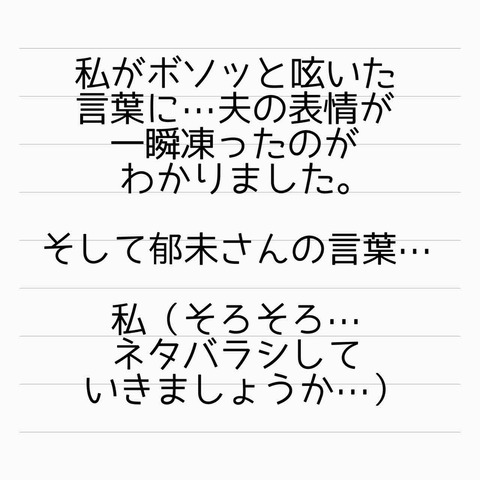 私がボソッと呟いた
言葉に…夫の表情が
一瞬凍ったのが
わかりました。
そして郁未さんの言葉…
私（そろそろ…
ネタバラシして
いきましょうか…）